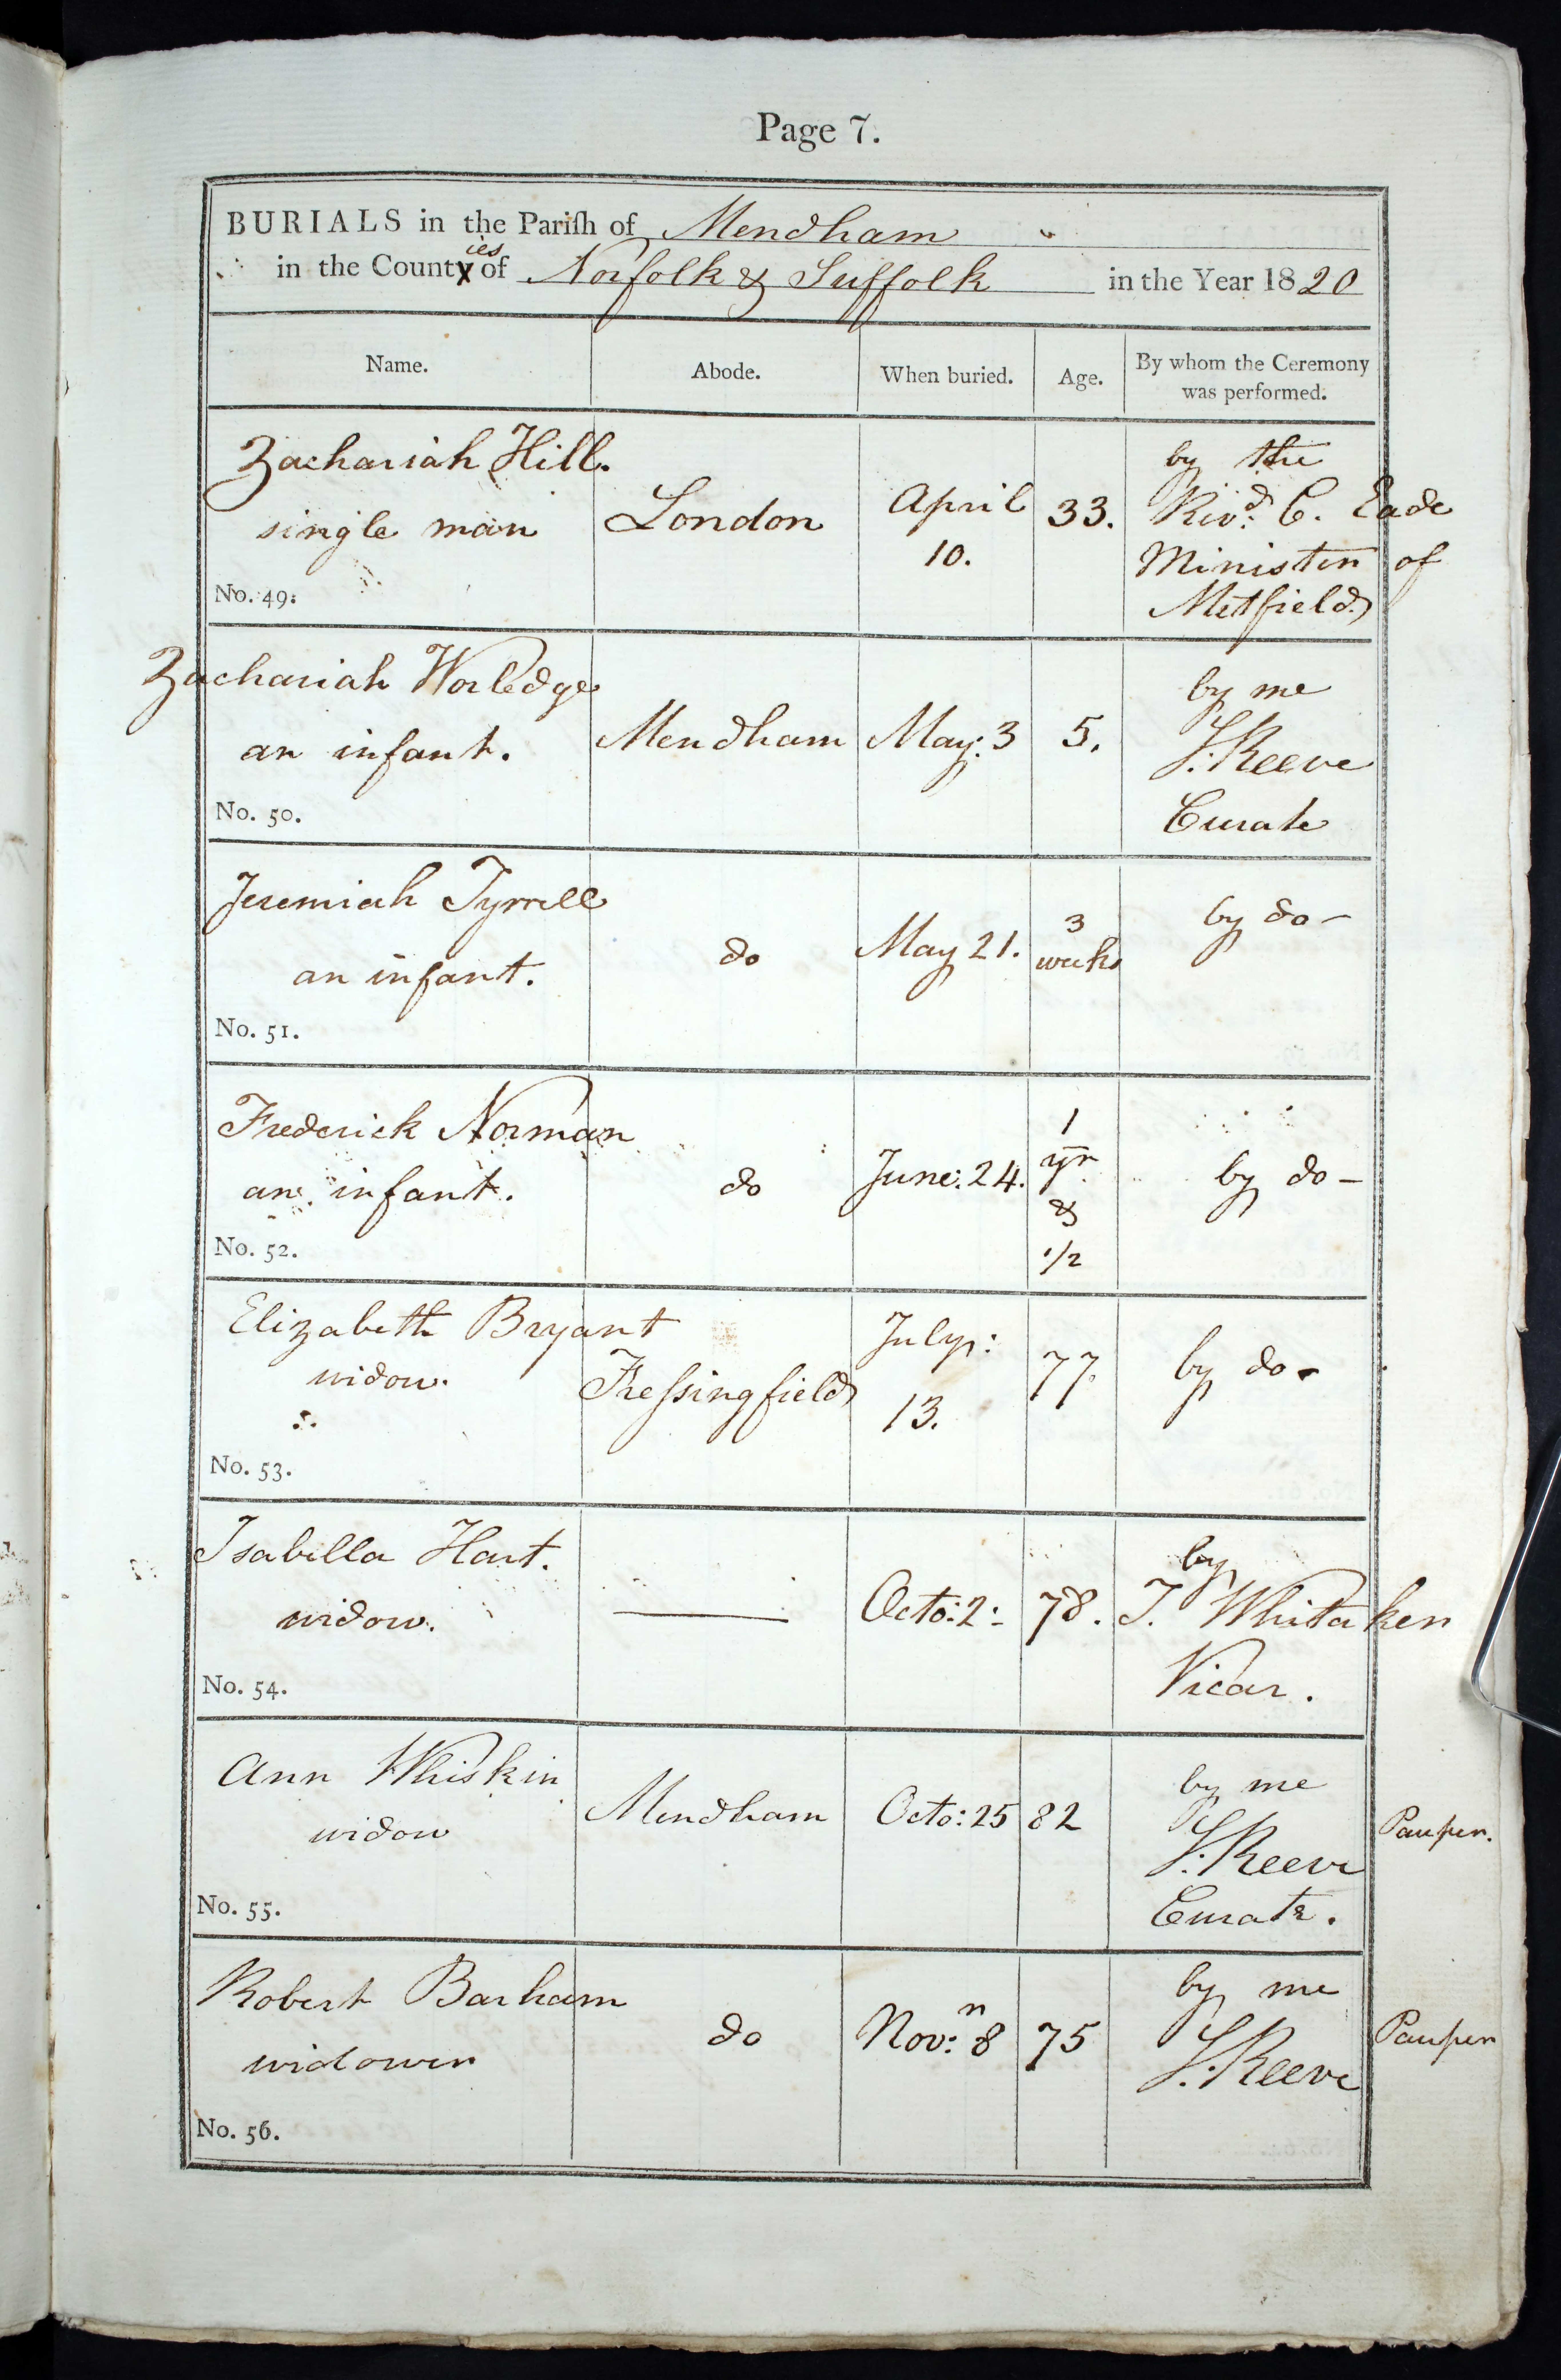 Page 7.
BURIALS in the Pariſh of Mendham
in the Counties of Norfolk & Suffolk in the Year 1820
Name. Abode. When buried. Age. By whom the Ceremony was performed.
Zachariah Hill.
single man
No. 49.
London
April
10.
33.
by the
Revd. C. Eade
Minister of
Metfield
Zachariah Worledge
an infant.
No. 50.
Mendham
May: 3
5.
by me
S. Reeve
Curate
Jeremiah Tyrrell
an infant.
No. 51.
do
May 21.
3
weeks
by do-
Frederick Norman
an infant.
No. 52.
do
June: 24.
1
yr.
&
1/2
by do-
Elizabeth Bryant
widow.
No. 53.
Freſsingfield
July:
13.
77.
by do-
Isabella Hart.
widow.
No. 54.
Octo: 2:
78.
by
T. Whitaker
Vicar.
Ann Whiskin
widow
No. 55.
Mendham
Octo: 25
82
by me
S. Reeve
Curate.
Pauper.
Robert Barham
widower
No. 56.
do
Nov:r 8
75
by me
S. Reeve
Pauper